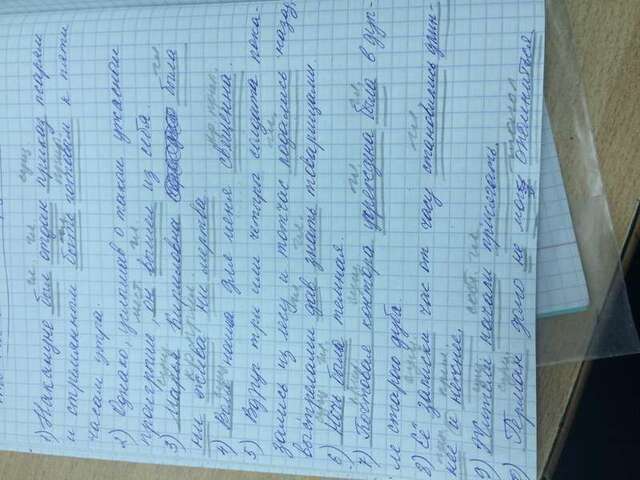 гл. гл. сущ
1) Накануне был отдан приказ псарям
и стремянным быть готовам к пяти
часам утра.
2) Однако, услышав о таком ужасном
мест. гл.
проигрыше, он вышел из себя.
сущ гл.
3) Марья Кириловна была
ни жива ни мертва
сущ кр. прил.
4) Воля наша для меня священна.
5) Вдруг три или четыре солдата пока-
зались из лесу и тотчас подались назад,
гл. гл.
выстрелами дав знать товарищам.
сущ гл.
6) Ночь была темная.
прил. сущ. гл. гл.
7) Почтовая контора учреждена была в дуп-
ле старого дуба.
сущ. гл.
8) Её записки час от часу становились длин-
нее и нежнее.
сущ. гл.
9) Жители начали присягать.
сущ. глагол
Герман долго не мог опомниться